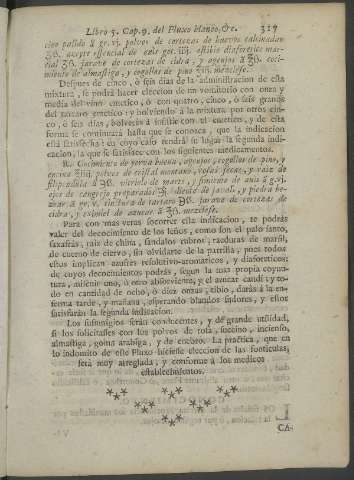 Libro 5. Cap. 9. del Fluxo blanco, &c. 317
cion pasido â gr. vj. polvos de cortezas de huevos calcinadas
acepte essencial de enix got. iiij. estibio diaforetico mar-
cial ʒß. jarave de cortezas de cidra, y agenjos â ℥ß. coci-
miento de almastiga, y cogollos de pino ℥iij. mezclese.
Despues de cinco, ò seis dias de la administracion de esta
mixtura, se podrá hacer eleccion de un vomitorio con onza y
media del vino emetico, ò con quatro, cinco, ò seis granos
del tartaro emetico; y bolviendo à la mixtura por otros cin-
co, ò seis dias, bolverás à insistir con el emetico, y de esta
forma se continuará hasta que se conozca, que la indicacion
está satisfecha; en cuyo caso tendrá su lugar la segunda indi-
cacion, la que se satisface con los siguientes medicamentos.
R. Cocimiento de yerva buena, agenjos, cogollos de pino, y
encina ℥iiij. polvos de cristal montano, rosas secas, y raiz de
filipendula â ℈ß. vitriolo de marte, y simiente de anis â gr. vj.
ojos de cangrejo preparados diente de javali, y piedra be-
zoar â gr. v. tinctura de tartaro ℈ß. jarave de cortezas de
cidra, y oximiel de azucar â ℥ß. mezclese.
Para con mas veras socorrer esta indicacion, te podrás
valer del decocimiento de los leños, como son el palo santo,
saxafràs, raiz de china, sandalos rubros, raeduras de marfil,
de cuerno de ciervo, sin olvidarte de la parrilla, pues todos
estos implican auxèos resolutivo-aromaticos, y diaforeticos:
de cuyos decocimientos podrás, segun la mas propia coyun-
tura, mistente uno, ù otro absorviente, y el azucar candi; to-
do en cantidad de ocho, ò diez onzas, tibio, darás à la en-
ferma tarde, y mañana, esperando blandos sudores, y estos
satisfarán la segunda indicacion.
Los sufumigios serán conducentes, y de grande utilidad,
si los solicitasses con los polvos de rosa, succino, incienso,
almastiga, goma arabiga, y de enebro. La practica, que en
lo indomito de este Fluxo hiciesse eleccion de las fontículas,
será muy arreglada, y conforme à los medicos
establecimientos.
CA-